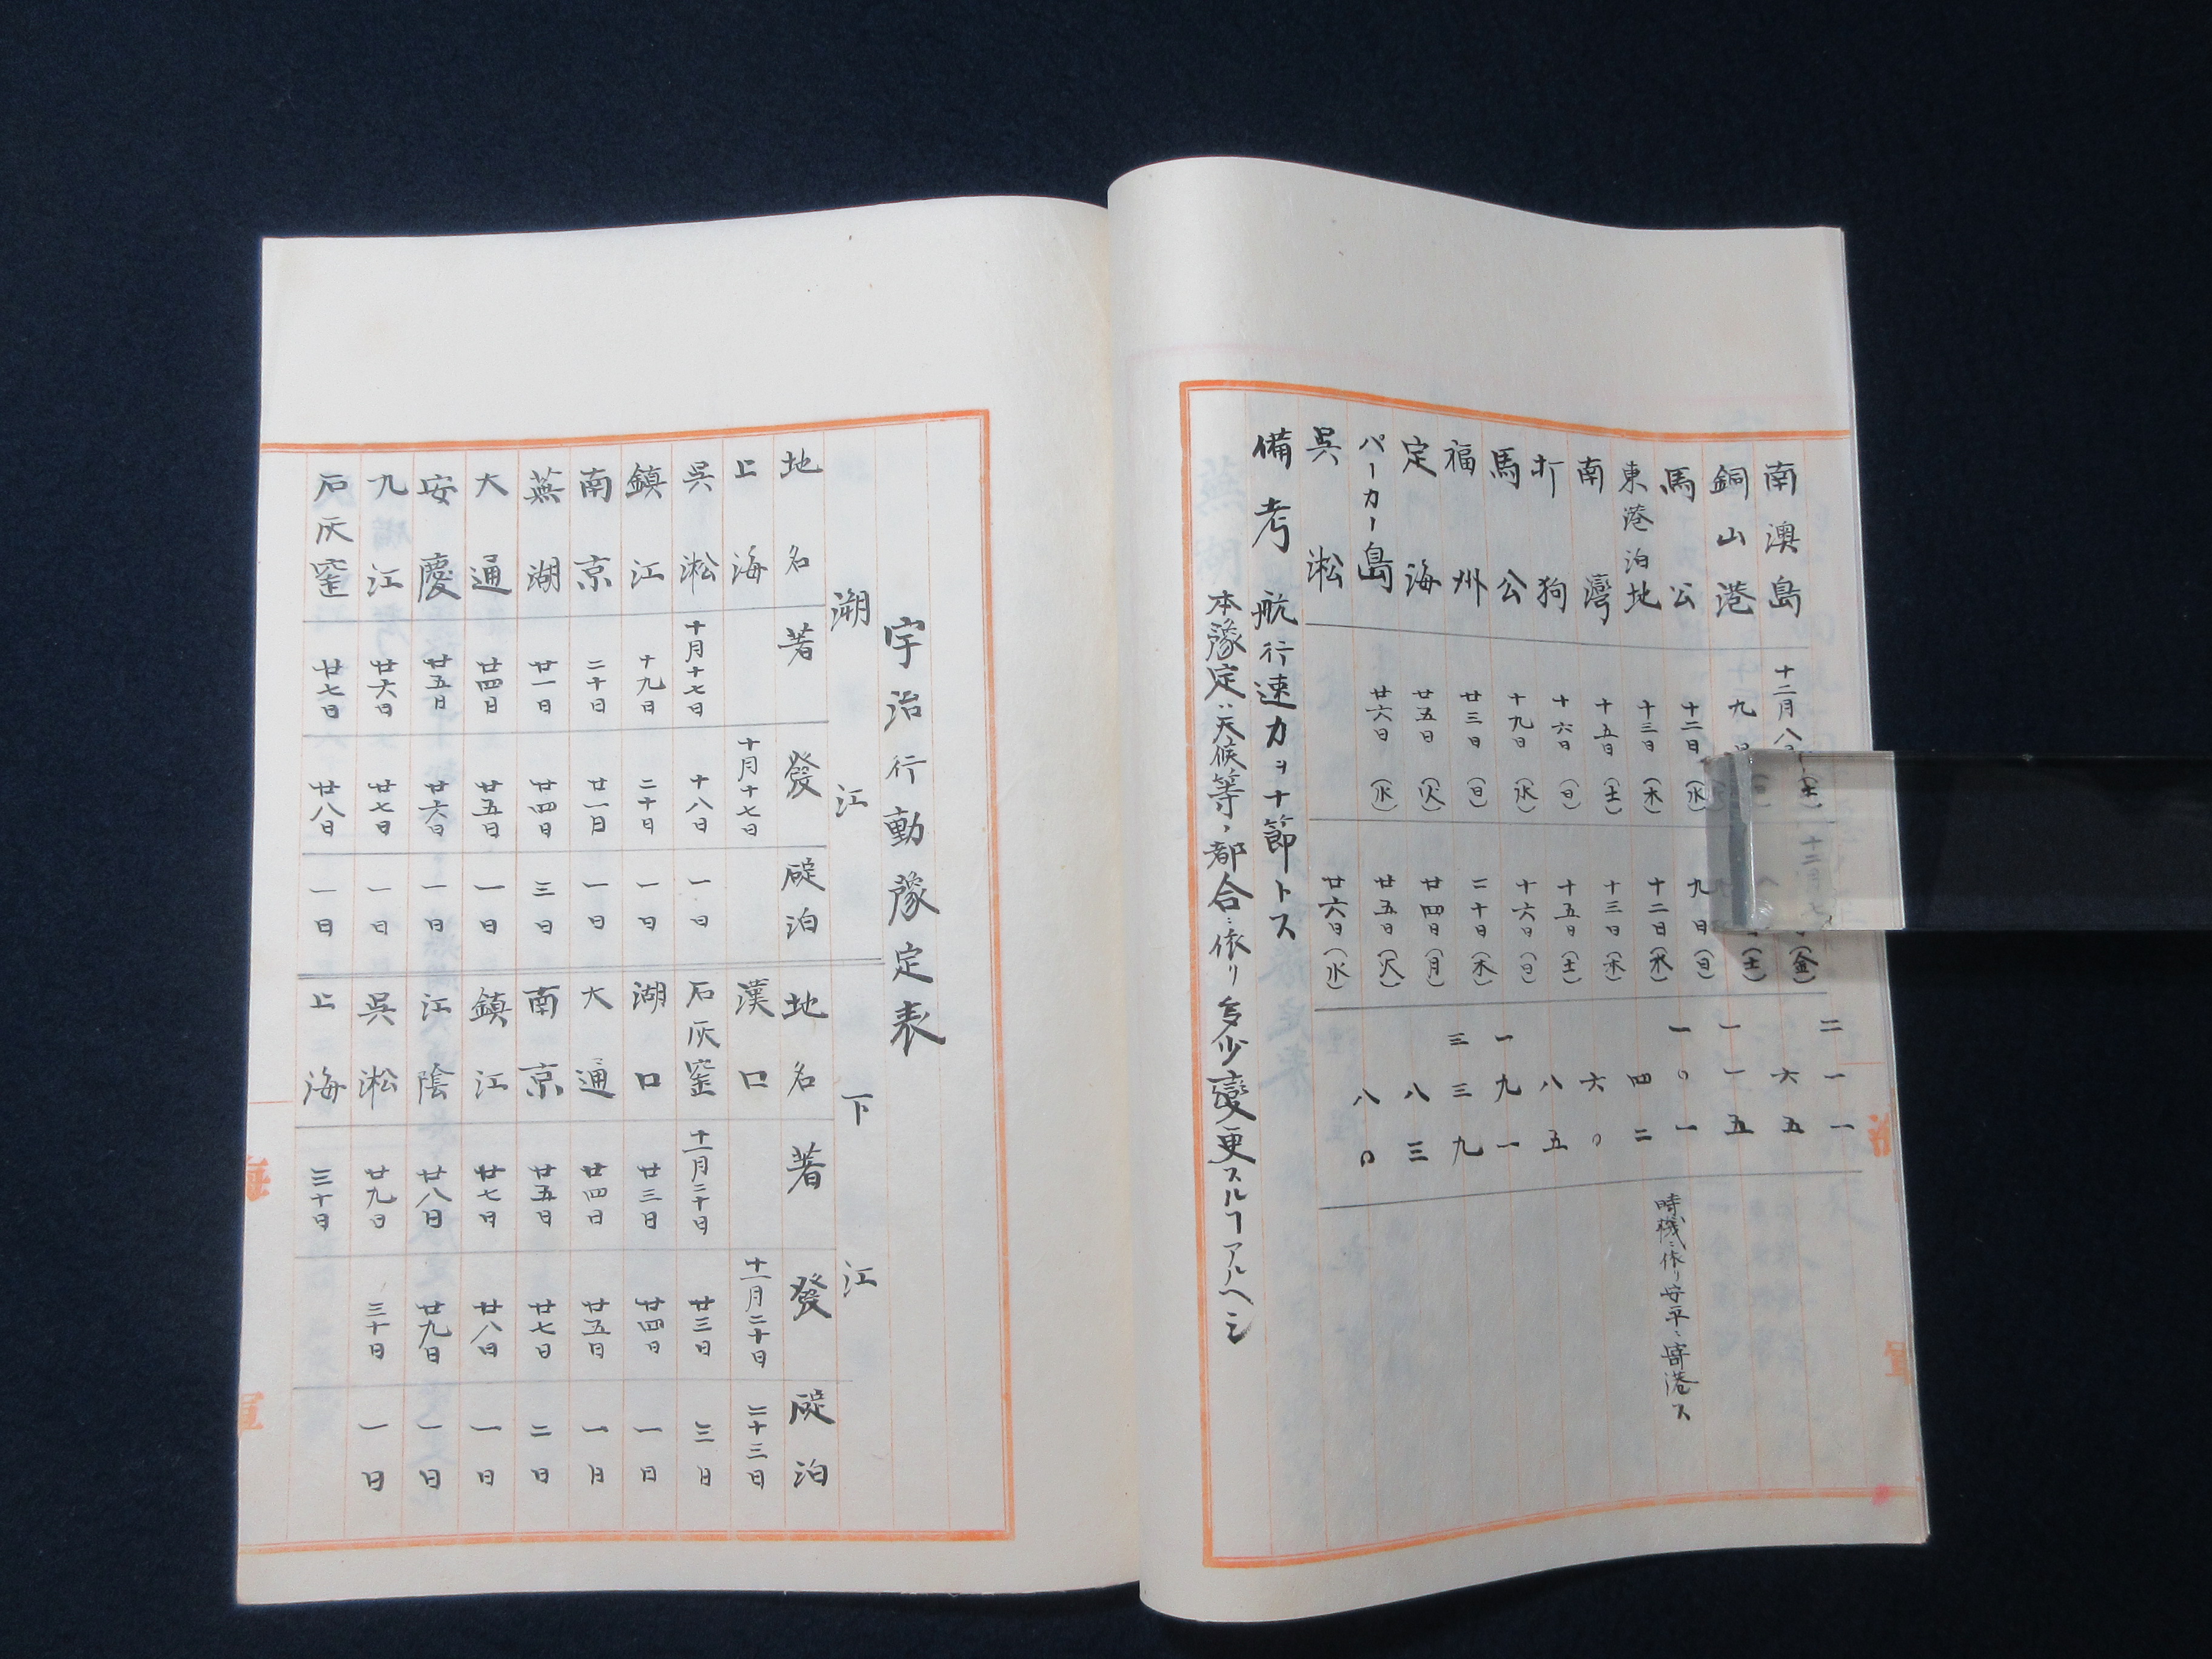 南澳島 十二月八日(土) 十二月七日(金) 二一一
銅山港 九日 (土) 六五
馬公 十二日(水) 九日(日) 一一五
東港泊地 十三日(木) 十二日(水) 一〇一 時機ニ依リ安平ニ寄港ス
南灣 十五日(土) 十三日(木) 四二
打狗 十六日(日) 十五日(土) 六〇
馬公 十九日(水) 十六日(日) 八五
福州 廿三日(日) 二十日(木) 一九一
定海 廿五日(火) 廿四日(月) 三三九
パーカー島 廿六日(水) 廿五日(火) 八三
呉淞 廿六日(水) 八〇
備考 航行速力ヲ十節トス
本豫定ハ天候等ノ都合ニ依リ多少變更スルヿアルヘシ
宇治行動豫定表
溯江 下江
地名 著 發 碇泊 地名 著 發 碇泊
上海 十月十七日 漢口 十一月二十日 二十三日
呉淞 十月十七日 十八日 一日 石灰窰 十一月二十日 廿三日 三日
鎮江 十九日 二十日 一日 湖口 廿三日 廿四日 一日
南京 二十日 廿一日 一日 大通 廿四日 廿五日 一日
蕪湖 廿一日 廿四日 三日 南京 廿五日 廿七日 二日
大通 廿四日 廿五日 一日 鎮江 廿七日 廿八日 一日
安慶 廿五日 廿六日 一日 江陰 廿八日 廿九日 一日
九江 廿六日 廿七日 一日 呉淞 廿九日 三十日 一日
石灰窰 廿七日 廿八日 一日 上海 三十日
海軍